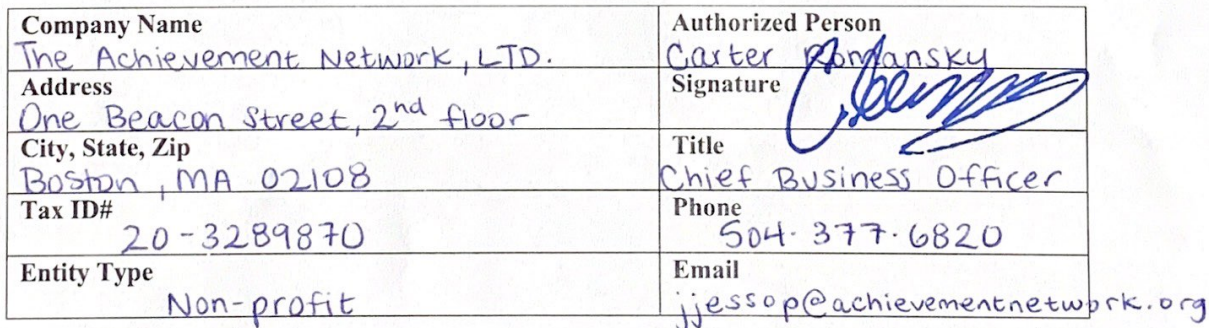 Company Name
The Achievement Network, LTD.
Authorized Person
Carter Romansky
Address
One Beacon Street, 2nd floor
Signature
City, State, Zip
Boston, MA 02108
Title
Chief Business Officer
Tax ID#
20-3289870
Phone
504.377.6820
Entity Type
Non-profit
Email
jjessop@achievementnetwork.org